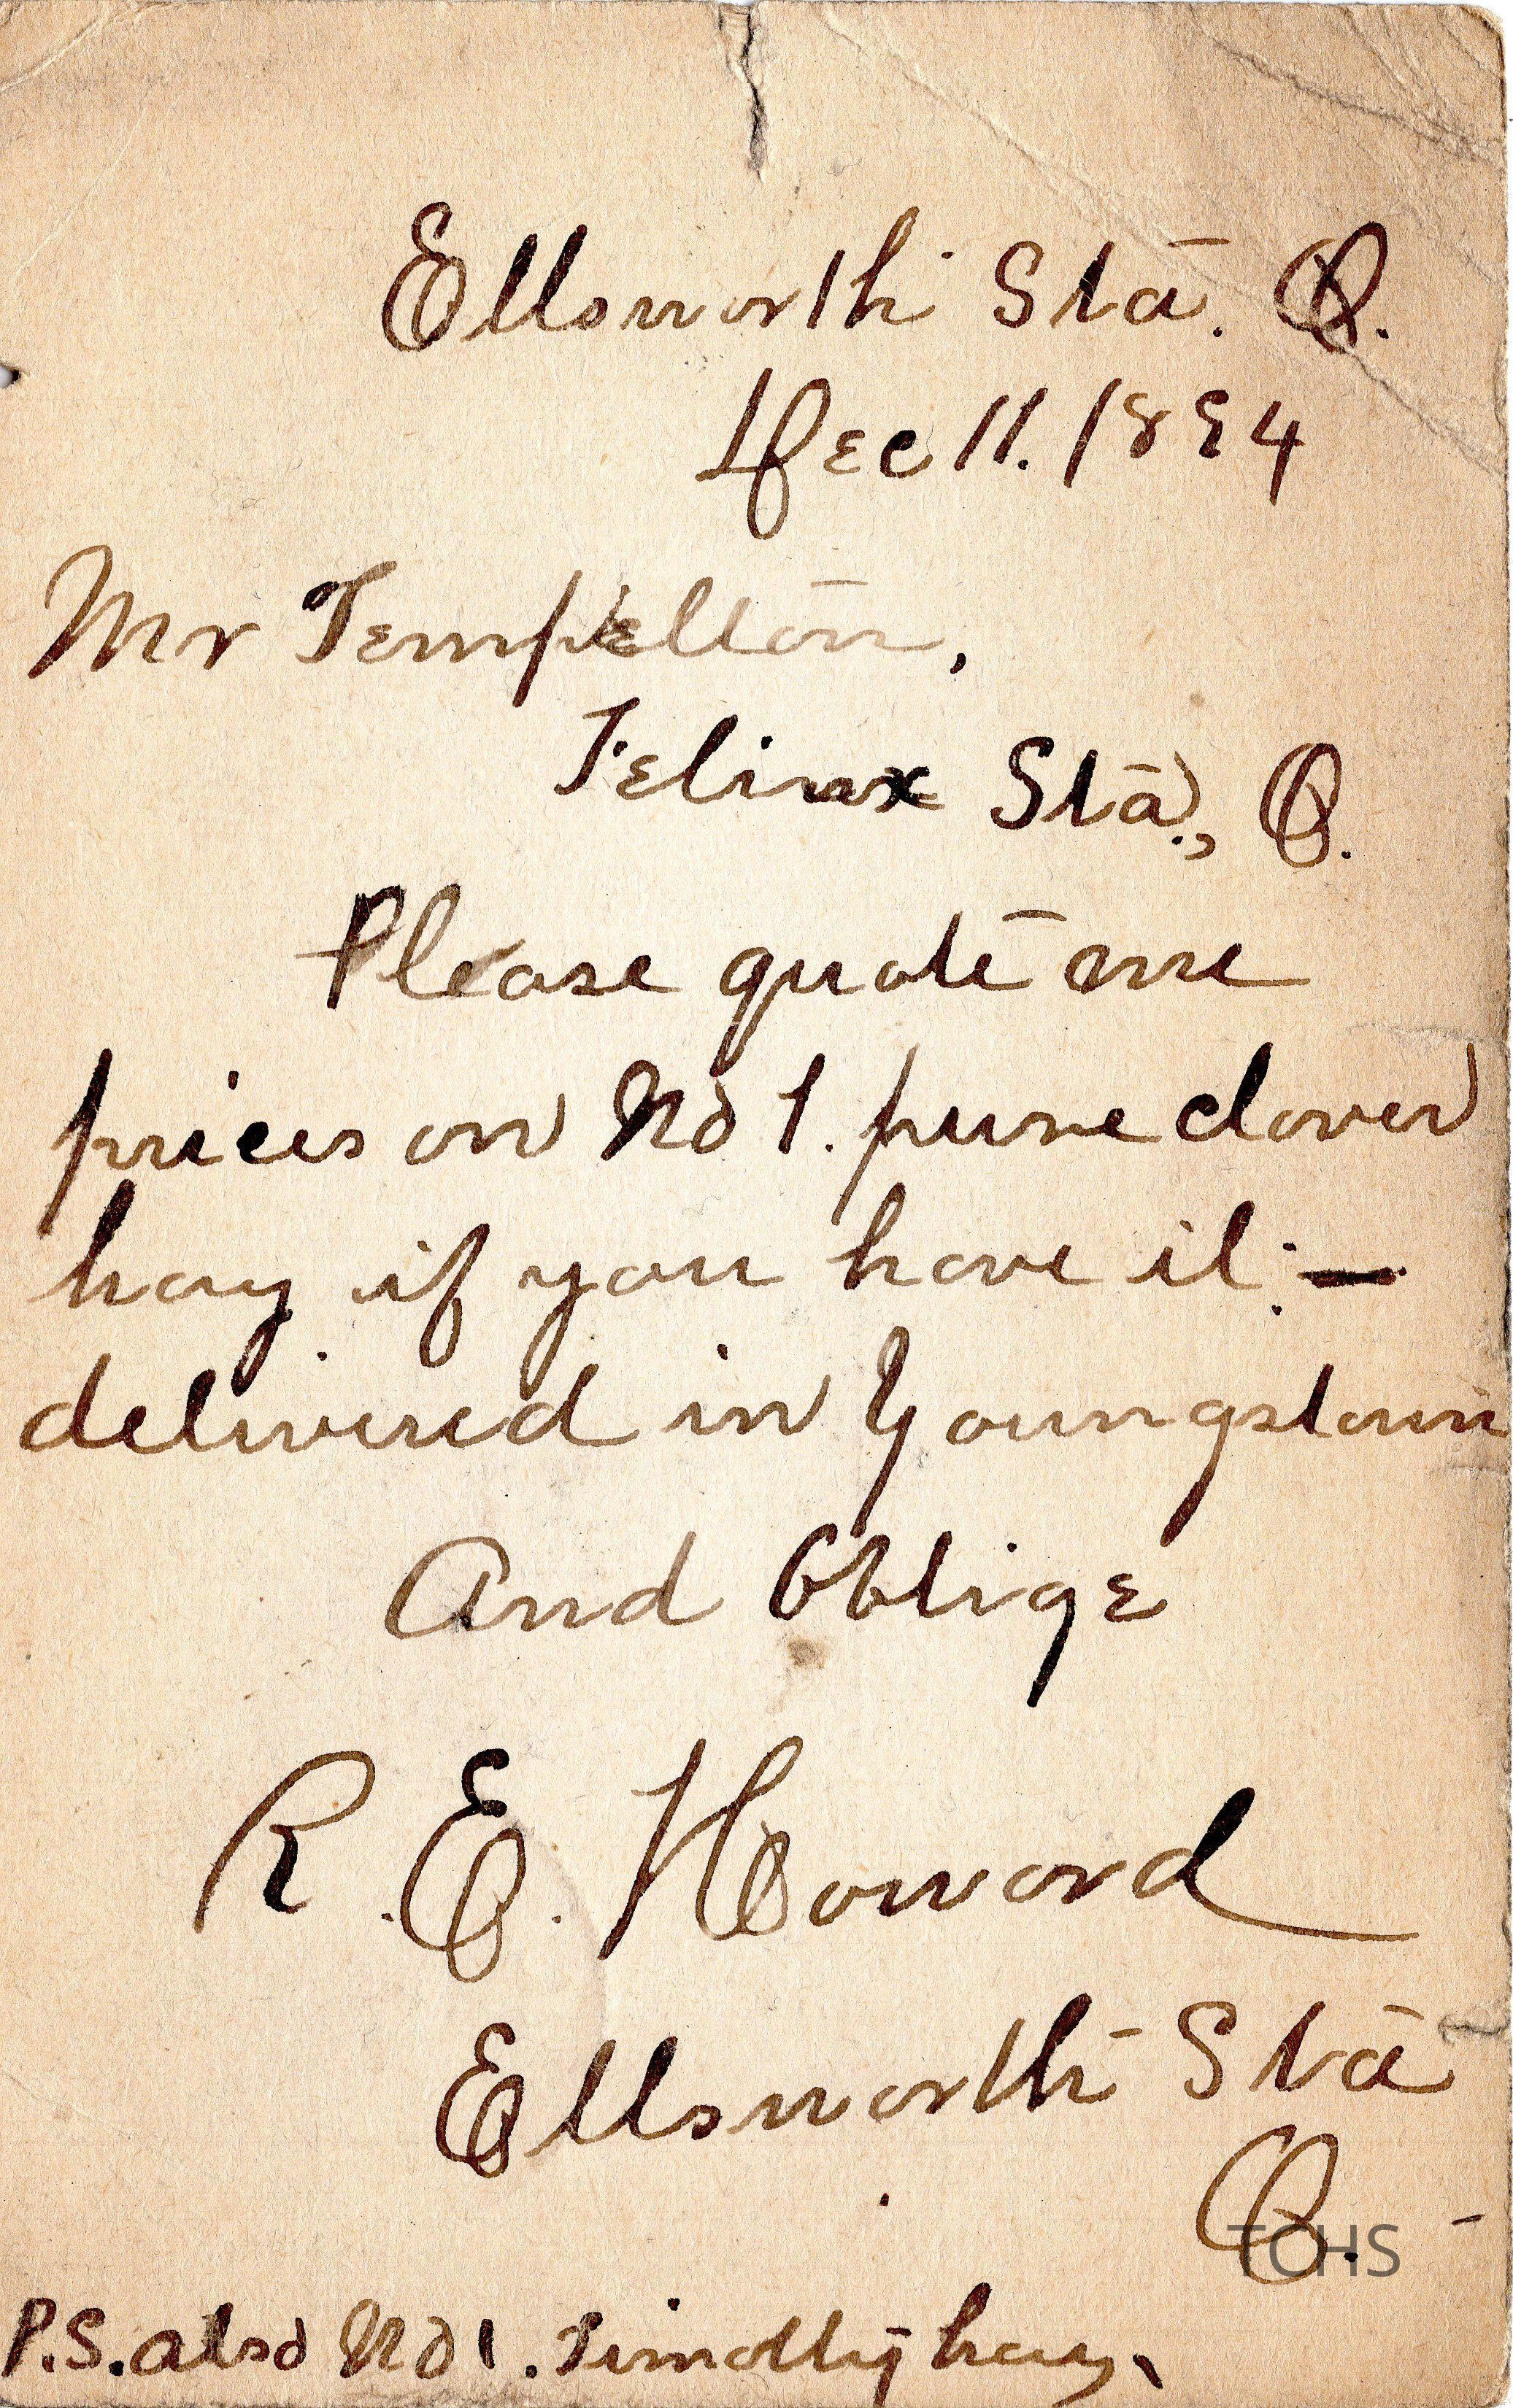 Ellsworth Sta. O.
Dec 11. 1894
Mr Tempelton,
Sta., O.
Please quote me
prices on No 1. pure clover
hay if you have it. —
delivered in Youngstown
And Oblige
R. E. Howard
Ellsworth Sta
O.
TCHS
P.S. also No 1. Timothy hay.